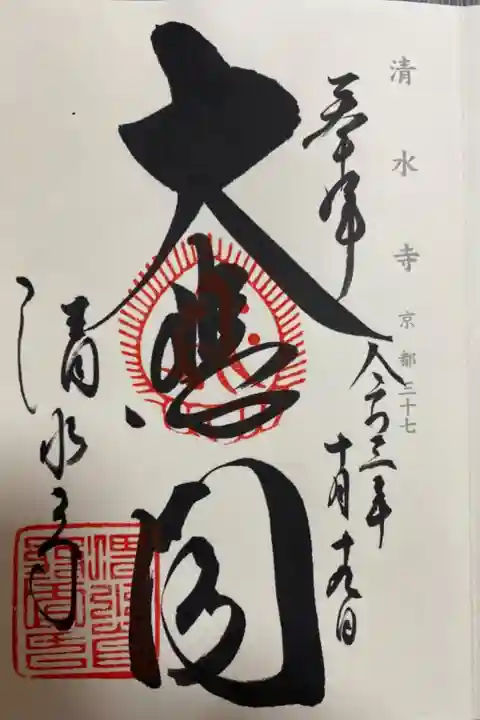 清水寺 京都 三十七
奉拝
令和三年
十月十九日
大悲閣
清水寺